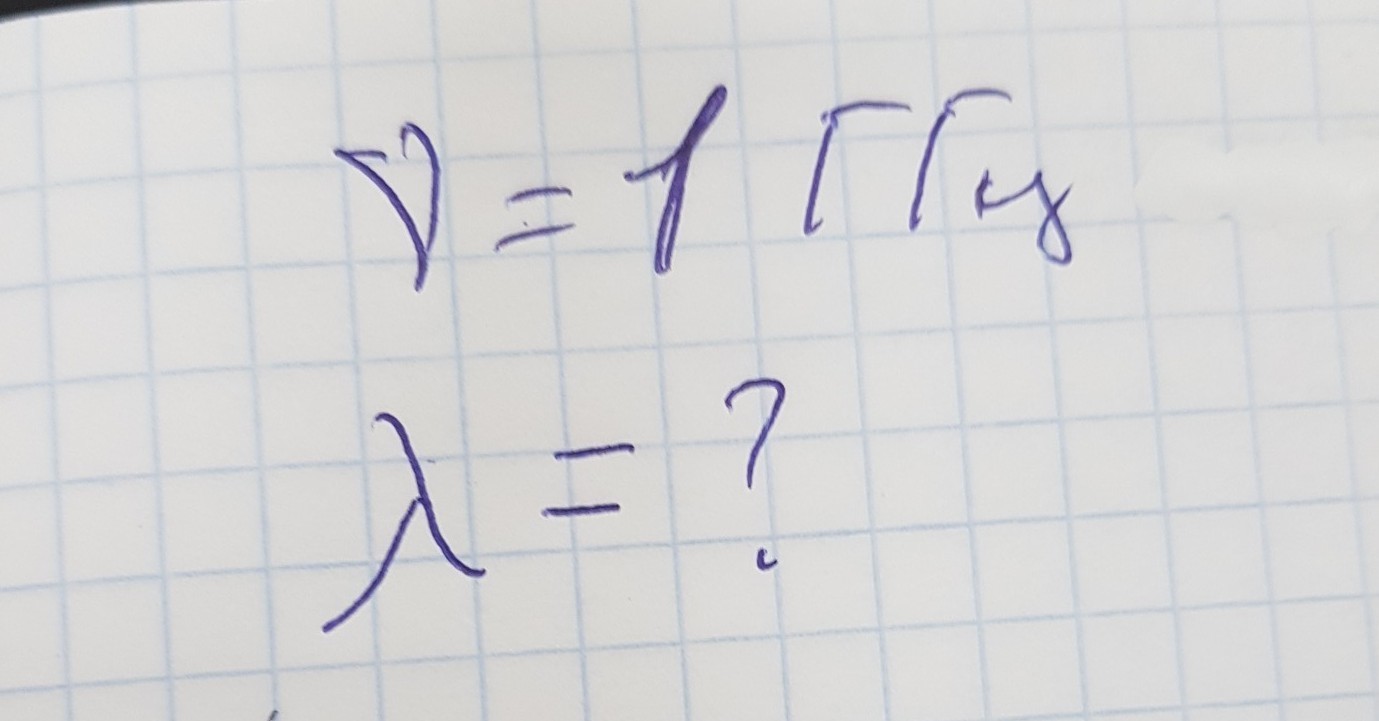 ν = 1 ГГц
λ = ?